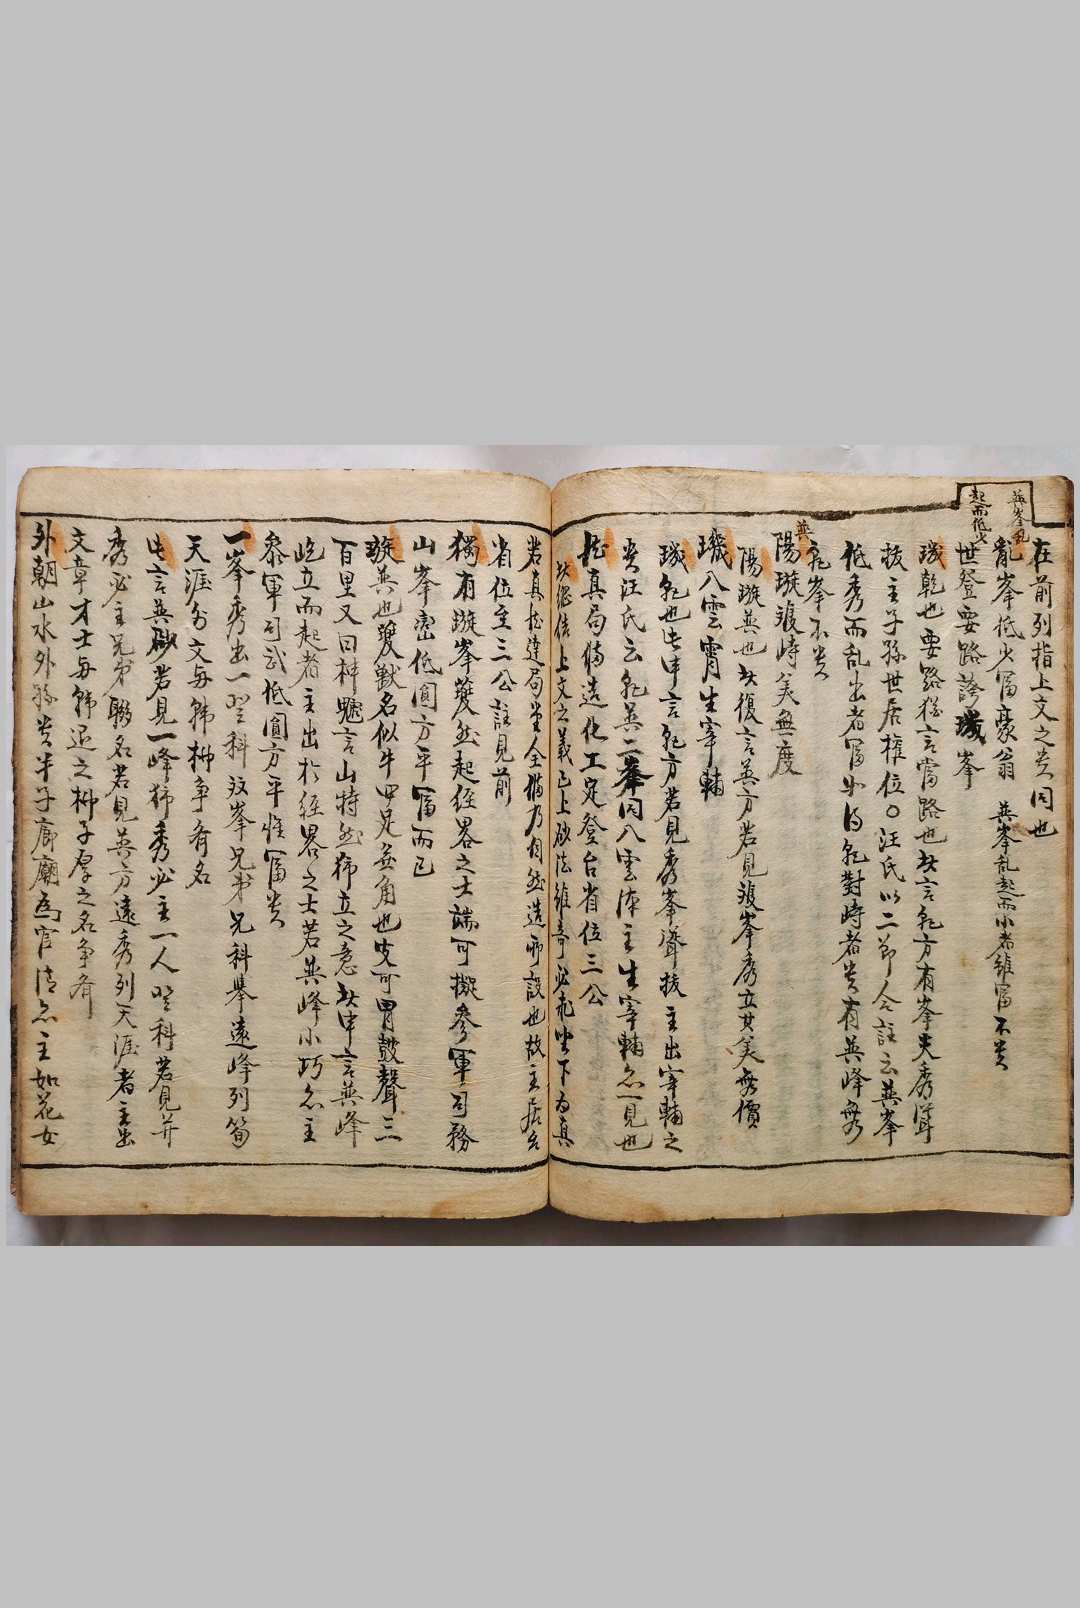 巽峯亂
起而低少
在前列指上文之炗同也
亂峯低少富豪翁 巽峯乱起而小者雖富不炗
世登要路誇璣峯
璣乾也要路猶言當路也此言乾方有峯夫秀聳
拔主子孫世居權位〇汪氏以二節合註云巽峯
低秀而乱出者富必乾對峙者炗有巽峰無
乾峯不炗
巽
陽璇雙峙美無度
陽璇巽也此復言巽方若見雙峯秀立其美無價
璣八雲霄生宰輔
璣乾也此申言乾方若見秀峯聳拔主出宰輔之
炗汪氏云乾巽二峯同八雲漢主生宰輔亦一見也
龍真局備造化工定登台省位三公
此總結上文之義已上砂法雖奇必龍坐下為真
若真龍達局堂全備乃自然造而設也故主居台
省位至三公註見前
獨有璇峯蘷然起經畧之士端可擬參軍司務
山峯巒低圓方平富而已
璇巽也蘷獸名似牛四足並角也皮可冒鼓聲三
百里又曰神魖言山特然獨立之意此申言巽峰
屹立而起者主出於經畧之士若巽峰小巧亦主
參軍司武低圓方平惟富炗
一峯秀出一登科雙峯兄弟兄科舉遠峰列筍
天涯外文与韩柳争有名
此言巽砂若見一峰獨秀必主一人登科若見并
秀必主兄弟聯名若見巽方遠秀列天涯者主出
文章才士与韩退之柳子厚之名争有
外朝山水外孫炗半子廊廟為官清亦主如花女